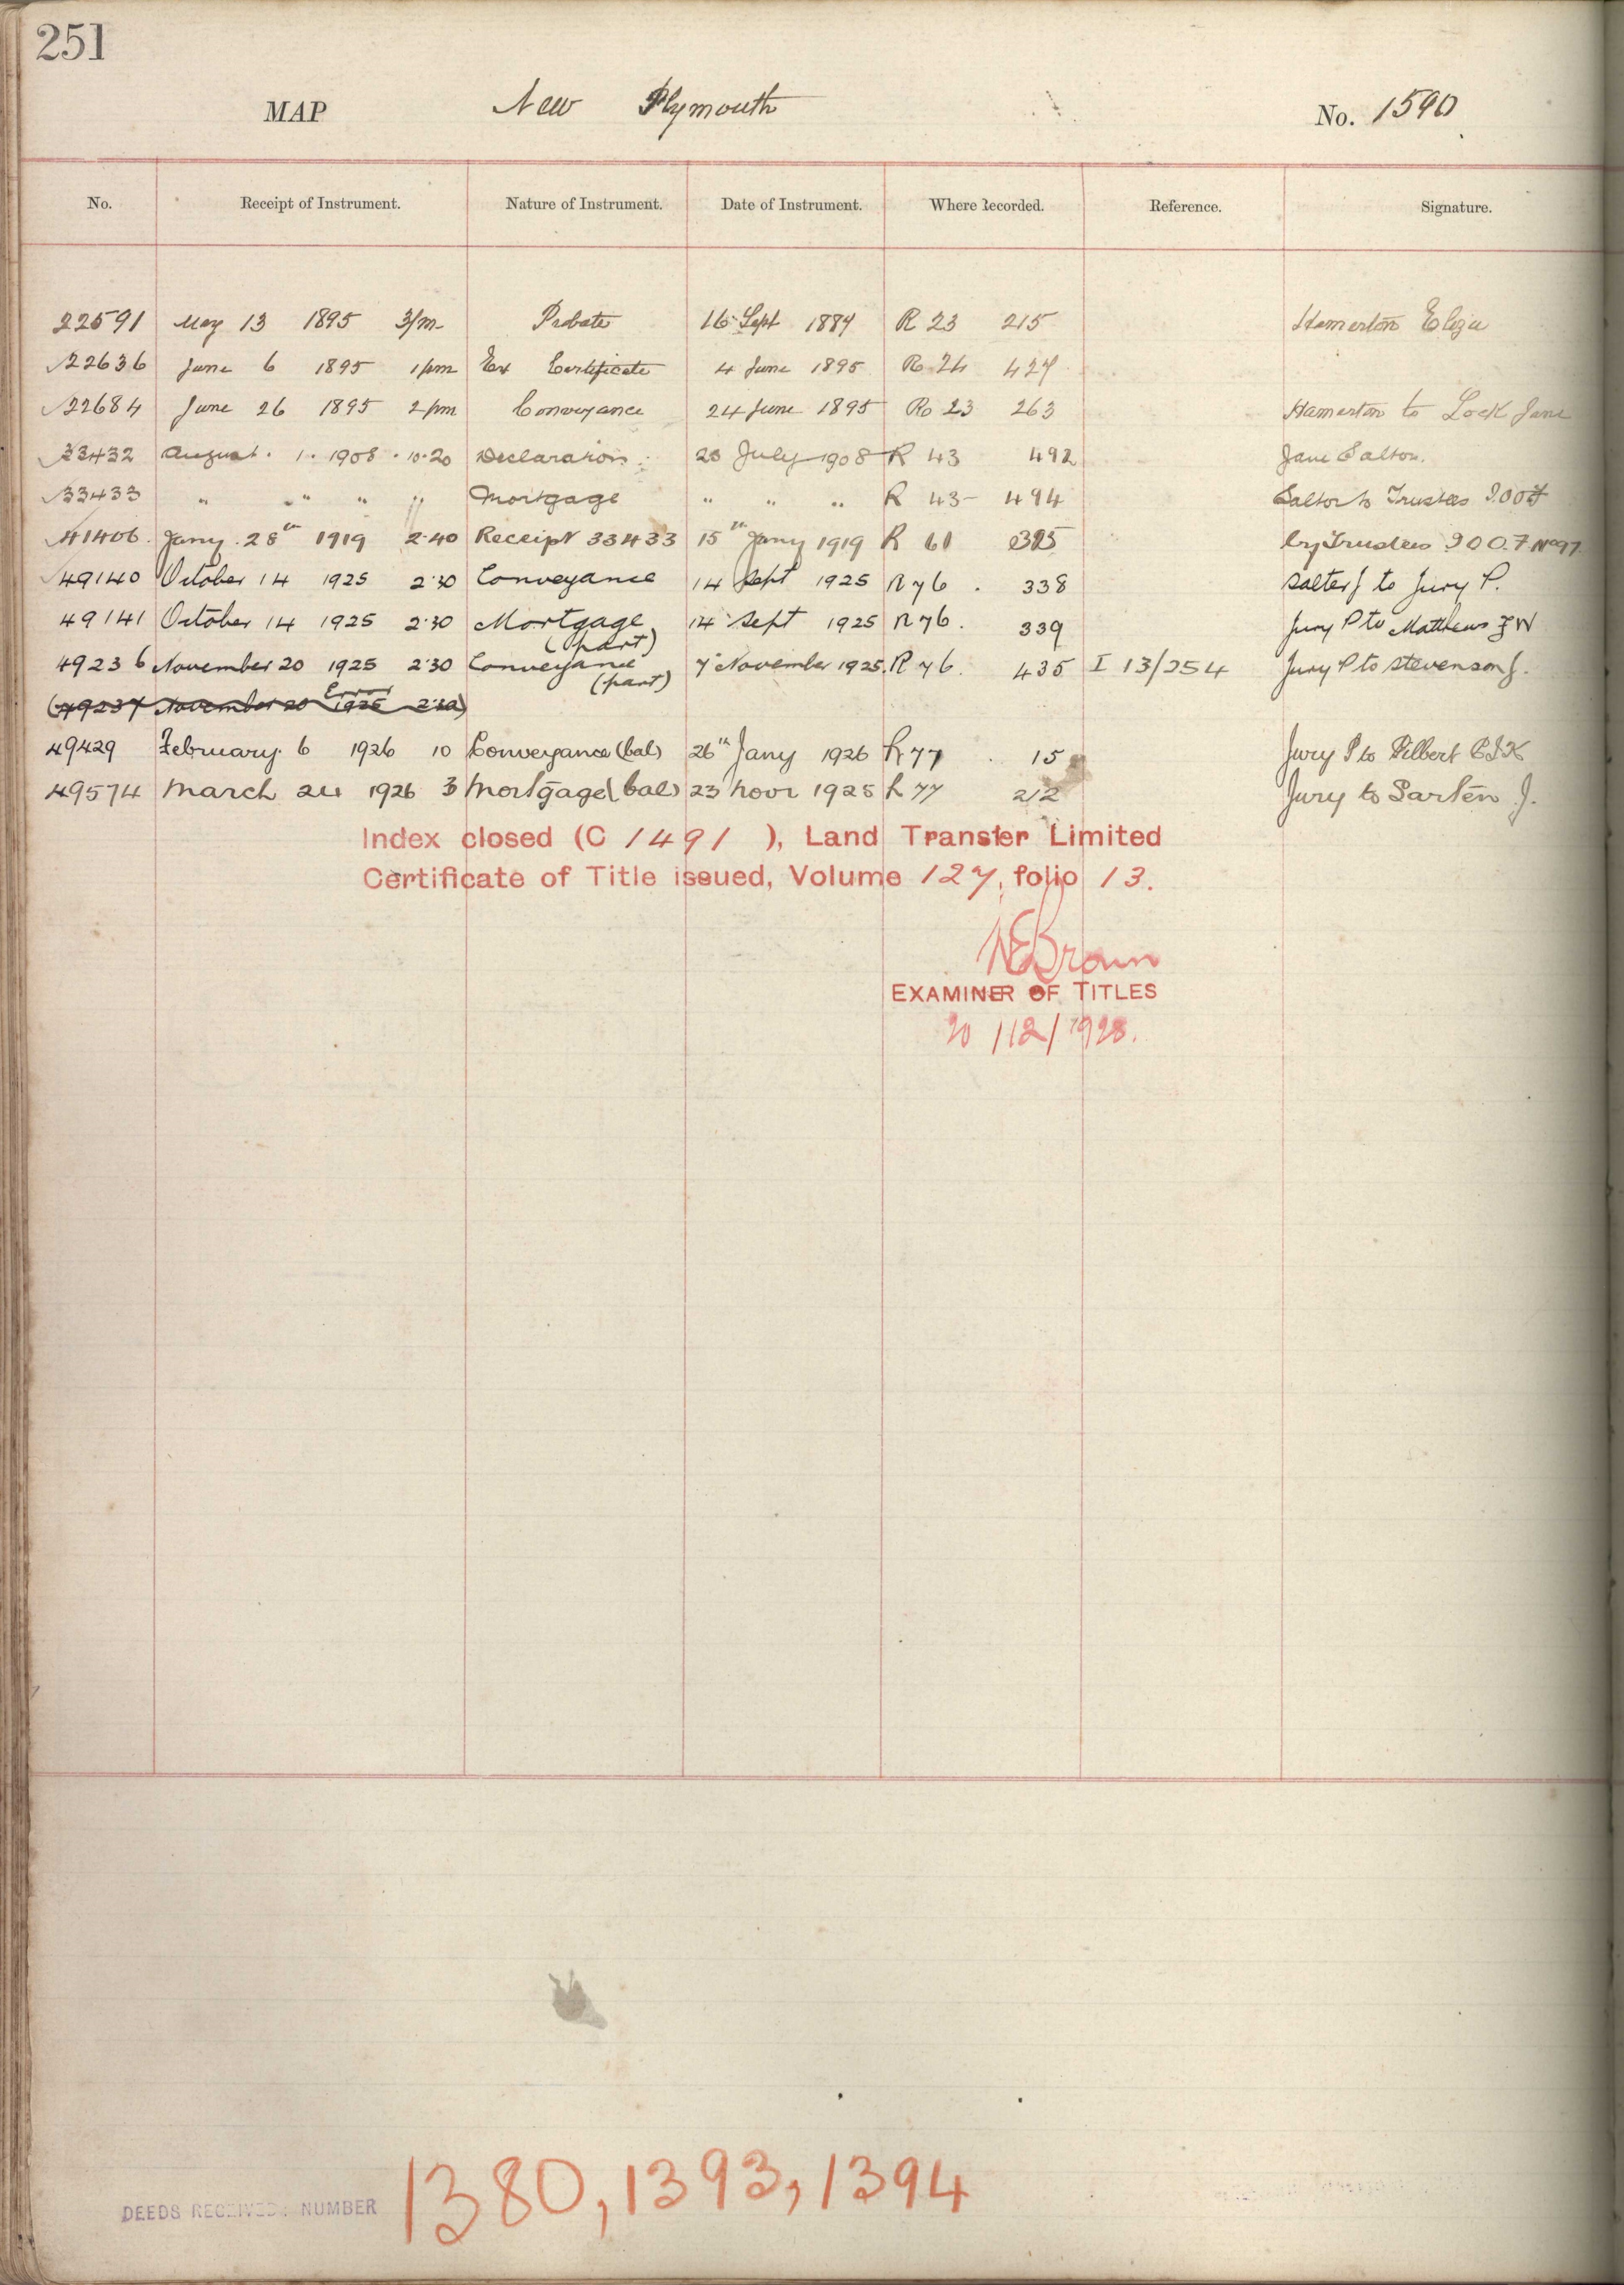 251
MAP New Plymouth No. 1590
No. Receipt of Instrument. Nature of Instrument. Date of Instrument. Where Recorded. Reference. Signature.
22591 May 13 1895 3pm Probate 16 Sept 1884 R 23 215 Hamerton Eliza
22636 June 6 1895 1pm Ex Certificate 4 June 1895 R 24 427
22684 June 26 1895 2pm Conveyance 24 June 1895 R 23 263 Hamerton to Lock Jane
33432 August 1 1908 10.20 Declaration 28 July 1908 R 43 492 Jane Salton.
33433 " " " " Mortgage " " " R 43 494 Saltor to Trustees I.O.O.F
41406 Jany 28th 1919 2.40 Receipt 33433 15th Jany 1919 R 61 by Trustees I O O.F. No 97
49140 October 14 1925 2.30 Conveyance 14 Sept 1925 R 76 338 Salter J to Jury P.
49141 October 14 1925 2.30 Mortgage 14 Sept 1925 R 76. 339 Jury P to Matthews F W
(part)
49236 November 20 1925 2.30 Conveyance 7 November 1925 R 76. 435 I 13/254 Jury P to Stevenson J.
(part)
Error
(49237 November 20 1925 2.30)
49429 February 6 1926 10 Conveyance (bal) 26th Jany 1926 R 77 15 Jury P to Pilbert
49574 March 24 1926 3 Mortgage (bal) 23 Novr 1925 R 77 212 Jury to Sarten J.
Index closed (C 1491 ), Land Transfer Limited
Certificate of Title issued, Volume 127, folio 13.
Brown
EXAMINER OF TITLES
20/12/1928.
DEEDS RECEIVED: NUMBER 1380, 1393, 1394